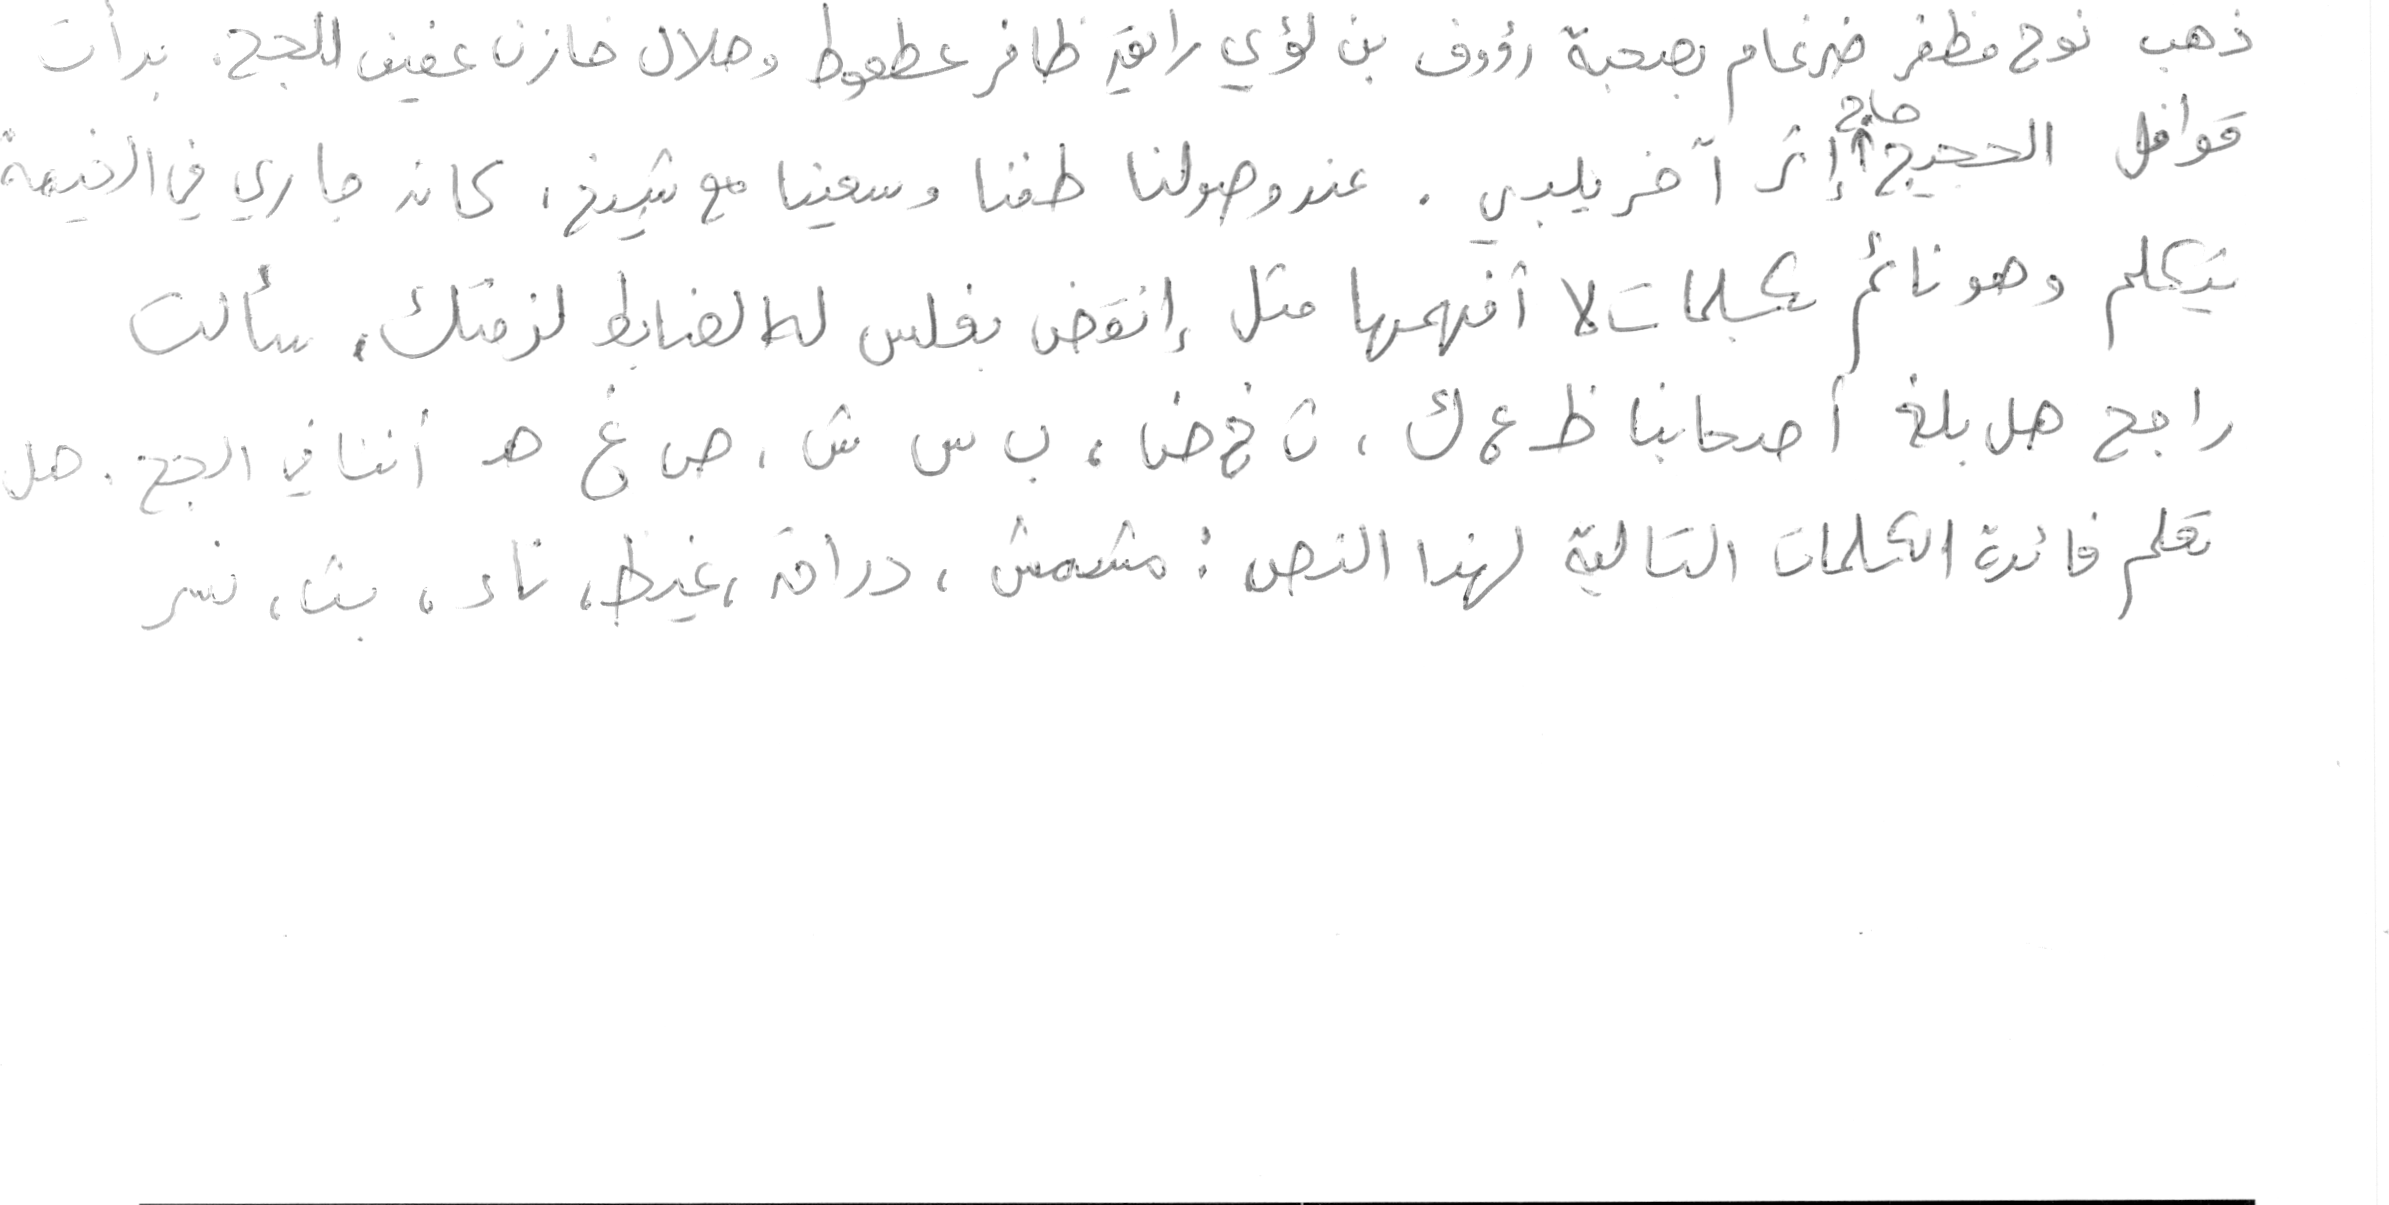 ذهب نوح مظفر ضرغام بصحبة رؤوف بن لؤي رايق ظافر عطعوط وهلال خازن عفيف للحج. بدأت
قوافل الحجيج حاج إثر آخر يلبي. عند وصولنا طفنا وسعينا مع شيخ، كان جاري في الخيمة
يتكلم وهو نائم بكلمات لا أفهمها مثل إنقض بفلس له لضابط لذمتك، سألت
راجح هل بلغ أصحابنا ظ ع ك، ث خ ض، ب س ش، ص غ هـ أننا في الحج. هل
تعلم فائدة الكلمات التالية لهذا النص: مشمش، دراق، غيظ، ناء، بث، نسر